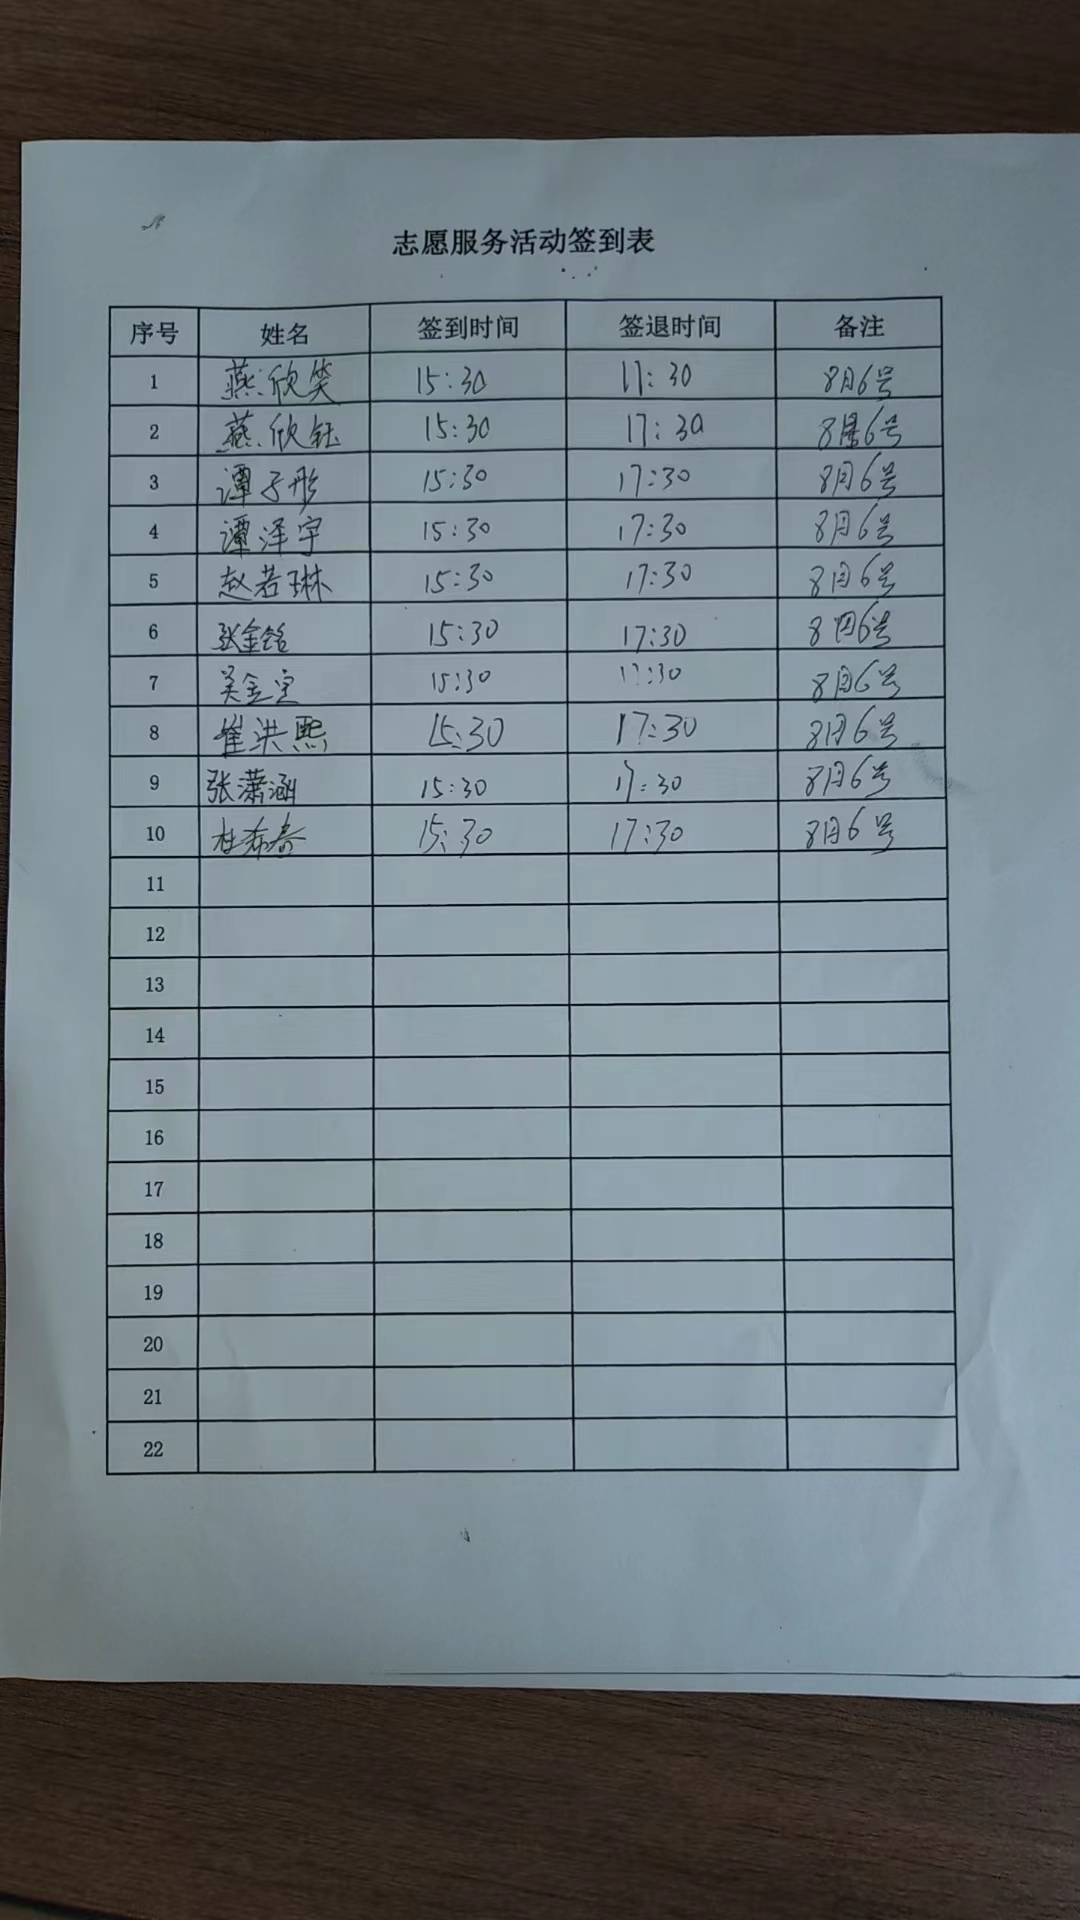 志愿服务活动签到表
序号 姓名 签到时间 签退时间 备注
1 燕欣笑 15:30 17:30 8月6号
2 燕欣钰 15:30 17:30 8月6号
3 谭子彤 15:30 17:30 8月6号
4 谭泽宇 15:30 17:30 8月6号
5 赵若琳 15:30 17:30 8月6号
6 15:30 17:30 8月6号
7 15:30 17:30 8月6号
8 崔洪熙 15:30 17:30 8月6号
9 张潇涵 15:30 17:30 8月6号
10 15:30 17:30 8月6号
11
12
13
14
15
16
17
18
19
20
21
22